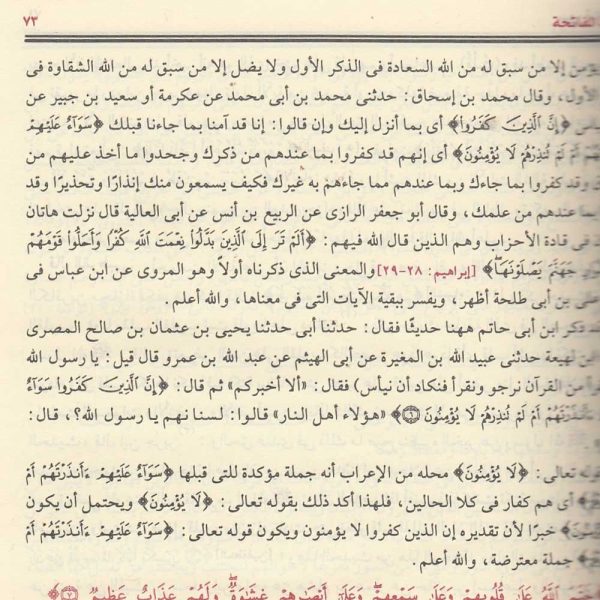 الفاتحة ٧٣
يؤمن إلا من سبق له من الله السعادة فى الذكر الأول ولا يضل إلا من سبق له من الله الشقاوة فى
الأول، وقال محمد بن إسحاق: حدثنى محمد بن أبى محمد عن عكرمة أو سعيد بن جبير عن
﴿إِنَّ الَّذِينَ كَفَرُوا﴾ أى بما أنزل إليك وإن قالوا: إنا قد آمنا بما جاءنا قبلك ﴿سَوَآءٌ عَلَيْهِمْ
أَمْ لَمْ تُنذِرْهُمْ لَا يُؤْمِنُونَ﴾ أى إنهم قد كفروا بما عندهم من ذكرك وجحدوا ما أخذ عليهم من
وقد كفروا بما جاءك وبما عندهم مما جاءهم به غيرك فكيف يسمعون منك إنذارًا وتحذيرًا وقد
بما عندهم من علمك، وقال أبو جعفر الرازى عن الربيع بن أنس عن أبى العالية قال نزلت هاتان
فى قادة الأحزاب وهم الذين قال الله فيهم: ﴿أَلَمْ تَرَ إِلَى الَّذِينَ بَدَّلُوا نِعْمَتَ اللَّهِ كُفْرًا وَأَحَلُّوا قَوْمَهُمْ
جَهَنَّمَ يَصْلَوْنَهَا﴾ [إبراهيم: ٢٨-٢٩] والمعنى الذى ذكرناه أولاً وهو المروى عن ابن عباس فى
على بن أبى طلحة أظهر، ويفسر ببقية الآيات التى فى معناها، والله أعلم.
ذكر ابن أبى حاتم ههنا حديثًا فقال: حدثنا أبى حدثنا يحيى بن عثمان بن صالح المصرى
ابن لهيعة حدثنى عبيد الله بن المغيرة عن أبى الهيثم عن عبد الله بن عمرو قال قيل: يا رسول الله
من القرآن نرجو ونقرأ فنكاد أن نيأس) فقال: «ألا أخبركم» ثم قال: ﴿إِنَّ الَّذِينَ كَفَرُوا سَوَآءٌ
أَمْ لَمْ تُنذِرْهُمْ لَا يُؤْمِنُونَ ۝﴾ «هؤلاء أهل النار» قالوا: لسنا نهم يا رسول الله؟، قال:
قوله تعالى: ﴿لَا يُؤْمِنُونَ﴾ محله من الإعراب أنه جملة مؤكدة للتى قبلها ﴿سَوَآءٌ عَلَيْهِمْ ءَأَنذَرْتَهُمْ أَمْ
أى هم كفار فى كلا الحالين، فلهذا أكد ذلك بقوله تعالى: ﴿لَا يُؤْمِنُونَ﴾ ويحتمل أن يكون
خبرًا لأن تقديره إن الذين كفروا لا يؤمنون ويكون قوله تعالى: ﴿سَوَآءٌ عَلَيْهِمْ ءَأَنذَرْتَهُمْ أَمْ
جملة معترضة، والله أعلم.
خَتَمَ اللَّهُ عَلَىٰ قُلُوبِهِمْ وَعَلَىٰ سَمْعِهِمْ وَعَلَىٰ أَبْصَارِهِمْ غِشَاوَةٌ وَلَهُمْ عَذَابٌ عَظِيمٌ ۝﴾